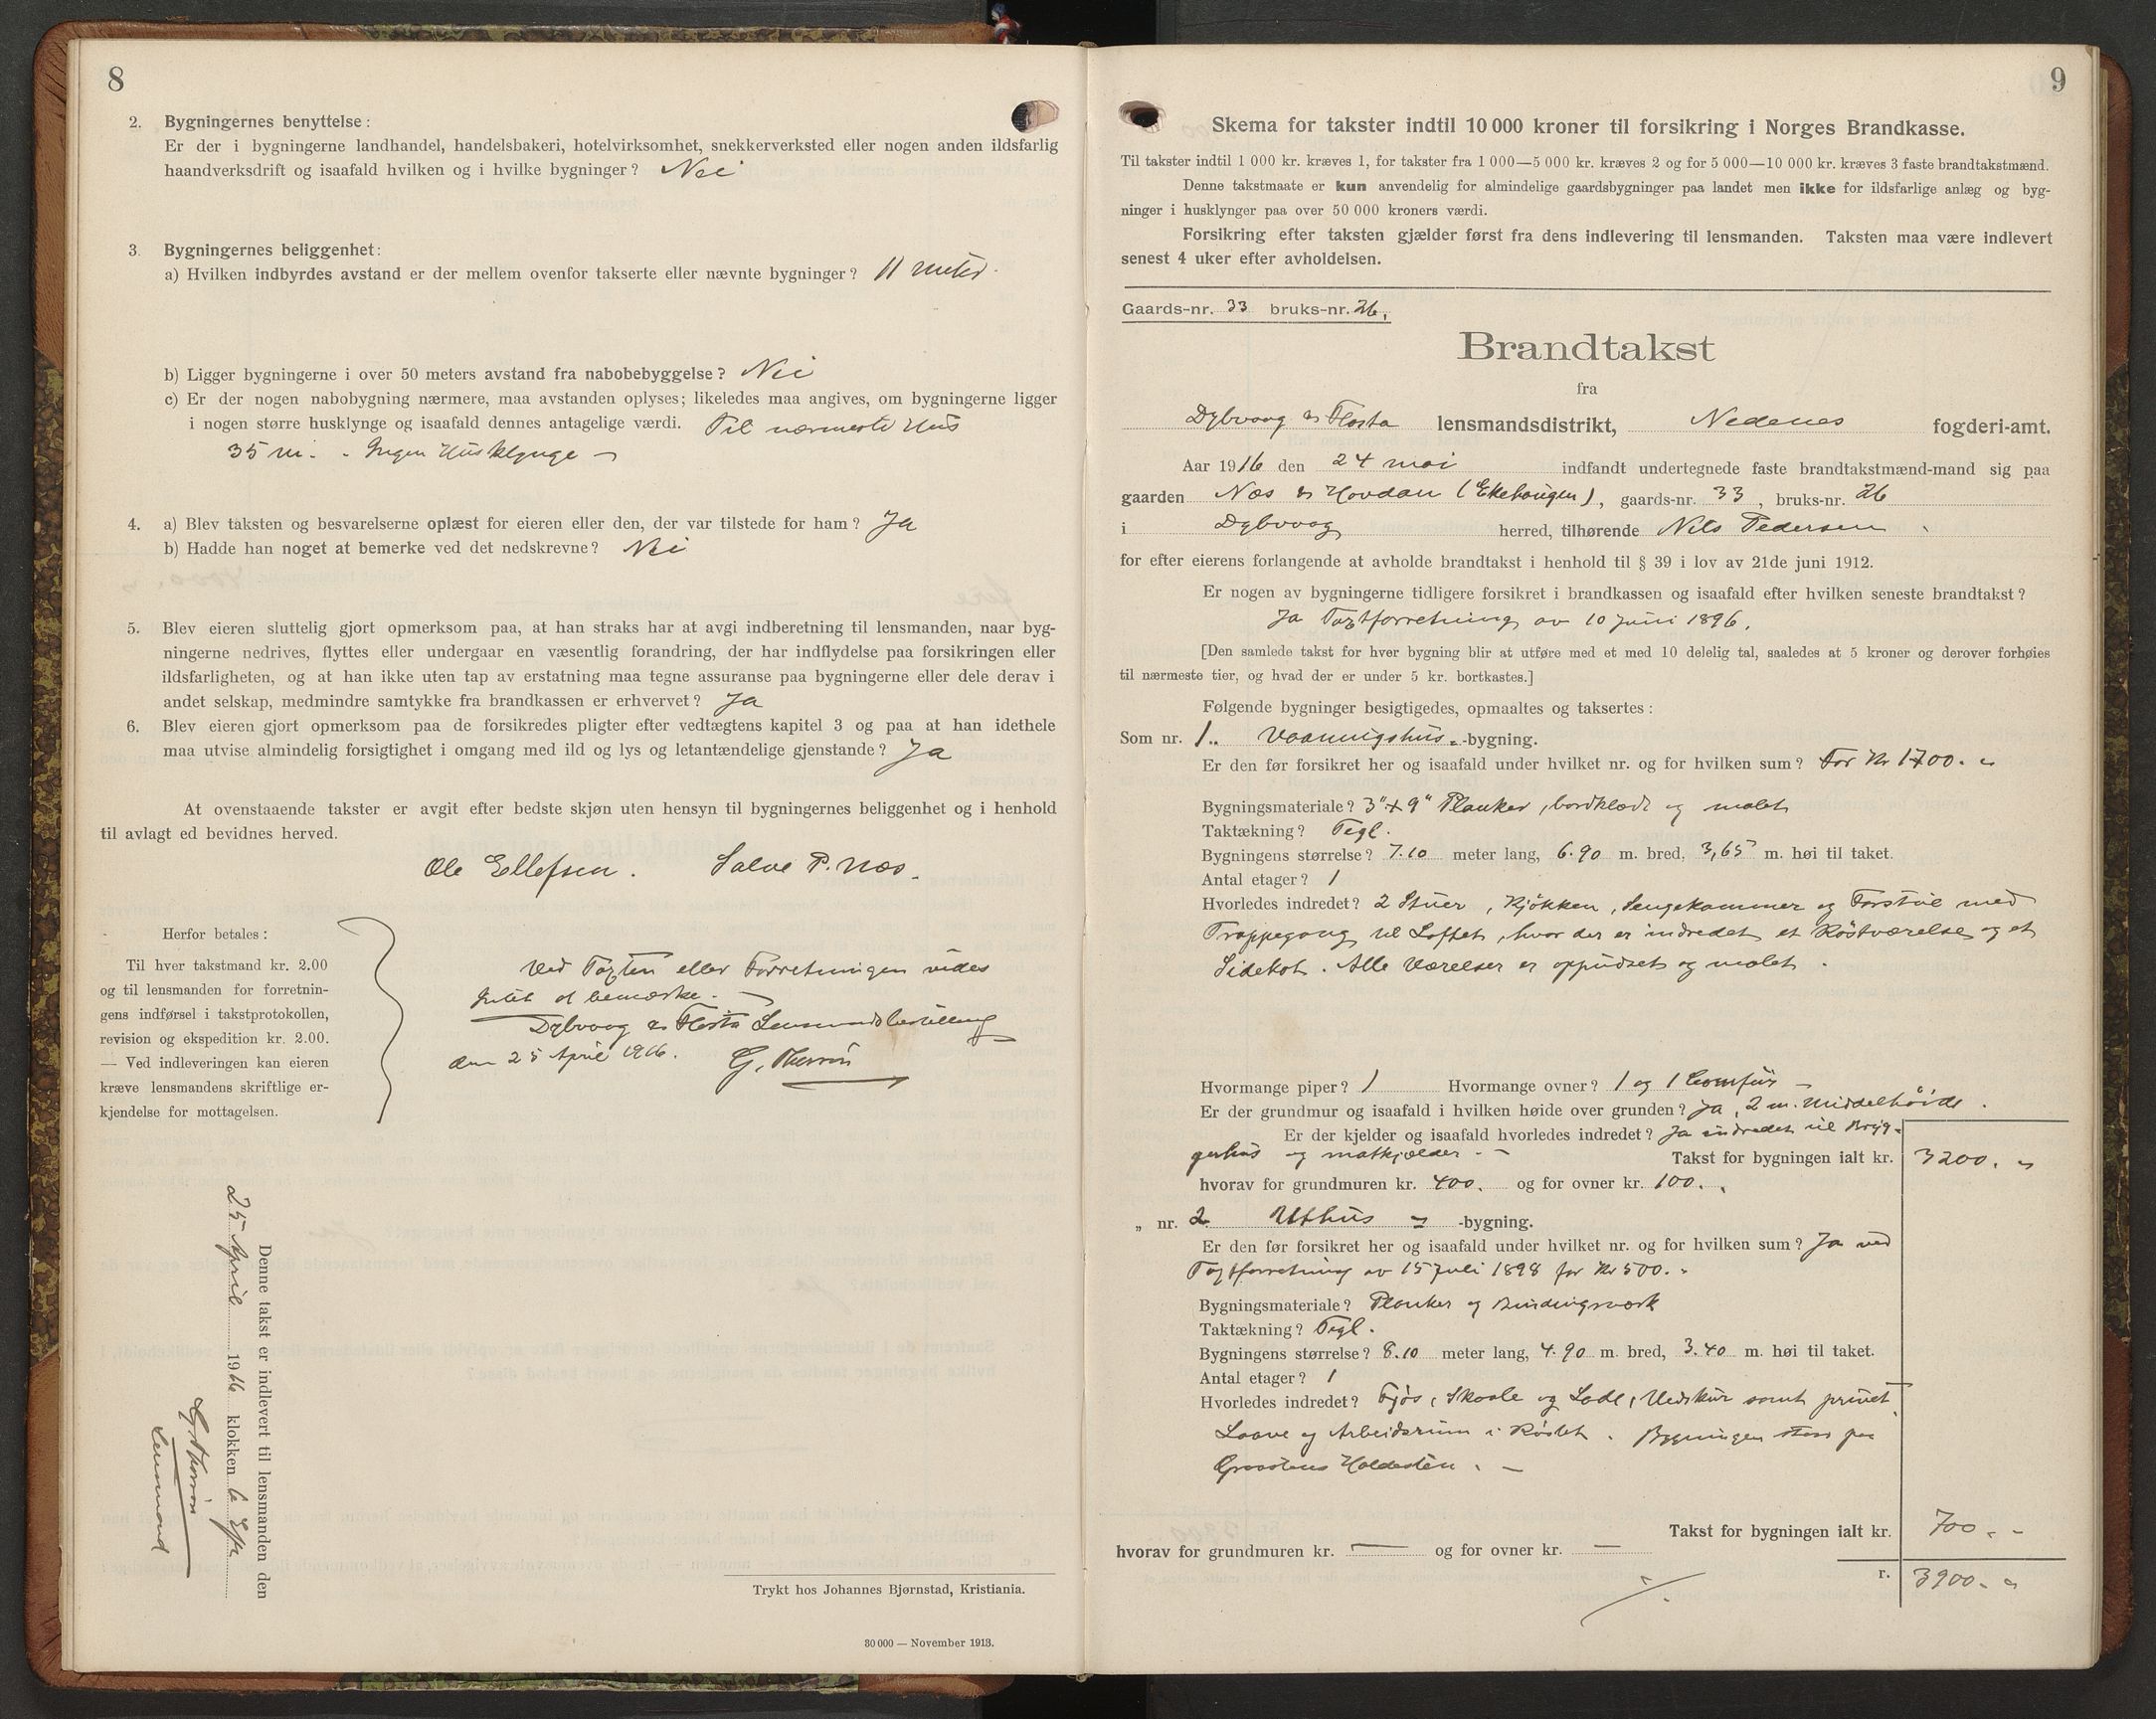 8
2. Bygningernes benyttelse:
Er der i bygningerne landhandel, handelsbakeri, hotelvirksomhet, snekkerverksted eller nogen anden ildsfarlig
haandverksdrift og isaafald hvilken og i hvilke bygninger? Nei
3. Bygningernes beliggenhet:
a) Hvilken indbyrdes avstand er der mellem ovenfor takserte eller nævnte bygninger? 11 meter.
b) Ligger bygningerne i over 50 meters avstand fra nabobebyggelse? Nei
c) Er der nogen nabobygning nærmere, maa avstanden oplyses; likeledes maa angives, om bygningerne ligger
i nogen større husklynge og isaafald dennes antagelige værdi. Til nærmeste Hus
35 m. - Ingen Husklynge -
4. a) Blev taksten og besvarelserne oplæst for eieren eller den, der var tilstede for ham? Ja
b) Hadde han noget at bemerke ved det nedskrevne? Nei
5. Blev eieren sluttelig gjort opmerksom paa, at han straks har at avgi indberetning til lensmanden, naar byg-
ningerne nedrives, flyttes eller undergaar en væsentlig forandring, der har indflydelse paa forsikringen eller
ildsfarligheten, og at han ikke uten tap av erstatning maa tegne assuranse paa bygningerne eller dele derav i
andet selskap, medmindre samtykke fra brandkassen er erhvervet? Ja
6. Blev eieren gjort opmerksom paa de forsikredes pligter efter vedtægtens kapitel 3 og paa at han idethele
maa utvise almindelig forsigtighet i omgang med ild og lys og letantændelige gjenstande? Ja
At ovenstaaende takster er avgit efter bedste skjøn uten hensyn til bygningernes beliggenhet og i henhold
til avlagt ed bevidnes herved.
Ole Ellefsen. Salve P. Næs.
Herfor betales:
Til hver takstmand kr. 2.00
og til lensmanden for forretnin-
gens indførsel i takstprotokollen,
revision og ekspedition kr. 2.00.
— Ved indleveringen kan eieren
kræve lensmandens skriftlige er-
kjendelse for mottagelsen.
Ved Taxten eller Forretningen vides
Intet at bemærke. -
Dybvaag & Flosta Lensmandsbestilling
den 25 April 1916. G,
Denne takst er indlevert til lensmanden den
25 April 1916 klokken 6 Eft
Lensmand
Trykt hos Johannes Bjørnstad, Kristiania.
30 000 — November 1913.
9
Skema for takster indtil 10 000 kroner til forsikring i Norges Brandkasse.
Til takster indtil 1 000 kr. kræves 1, for takster fra 1 000—5 000 kr. kræves 2 og for 5 000—10 000 kr. kræves 3 faste brandtakstmænd.
Denne takstmaate er kun anvendelig for almindelige gaardsbygninger paa landet men ikke for ildsfarlige anlæg og byg-
ninger i husklynger paa over 50 000 kroners værdi.
Forsikring efter taksten gjælder først fra dens indlevering til lensmanden. Taksten maa være indlevert
senest 4 uker efter avholdelsen.
Gaards-nr. 33 bruks-nr. 26,
Brandtakst
fra
Dybvaag & Flosta lensmandsdistrikt, Nedenes fogderi-amt.
Aar 1916 den 24 mai indfandt undertegnede faste brandtakstmænd-mand sig paa
gaarden Næs & Hovdan (Ekehaugen), gaards-nr. 33, bruks-nr. 26
i Dybvaag herred, tilhørende Nils Pedersen
for efter eierens forlangende at avholde brandtakst i henhold til § 39 i lov av 21de juni 1912.
Er nogen av bygningerne tidligere forsikret i brandkassen og isaafald efter hvilken seneste brandtakst?
Ja Taxtforretning av 10 Juni 1896.
[Den samlede takst for hver bygning blir at utføre med et med 10 delelig tal, saaledes at 5 kroner og derover forhøies
til nærmeste tier, og hvad der er under 5 kr. bortkastes.]
Følgende bygninger besigtigedes, opmaaltes og taksertes:
Som nr. 1. Vaaningshus-bygning.
Er den før forsikret her og isaafald under hvilket nr. og for hvilken sum? For Kr 1700.
Bygningsmateriale? 3"x9" Planker, bordklædt og malet
Taktækning? Tegl.
Bygningens størrelse? 7.10 meter lang, 6.90 m. bred, 3,65 m. høi til taket.
Antal etager? 1
Hvorledes indredet? 2 Stuer, Kjøkken, Sengekammer og Forstue med
Trappegang til Loftet, hvor der er indredet et Røstværelse og et
Sidekot. Alle Værelser er oppudset og malet.
Hvormange piper? 1 Hvormange ovner? 1 og 1 Comfur -
Er der grundmur og isaafald i hvilken høide over grunden? Ja, 2 m. Middelhøide.
Er der kjelder og isaafald hvorledes indredet? Ja indredet til Bryg-
gerhus og matkjælder. - Takst for bygningen ialt kr. 3200. -
hvorav for grundmuren kr. 400. og for ovner kr. 100.
„ nr. 2 Uthus -bygning.
Er den før forsikret her og isaafald under hvilket nr. og for hvilken sum? Ja ved
Taxtforretning av 15 Juli 1898 for Kr 500. -
Bygningsmateriale? Planker og Bindingsværk
Taktækning? Tegl.
Bygningens størrelse? 8.10 meter lang, 4.90 m. bred, 3.40 m. høi til taket.
Antal etager? 1
Hvorledes indredet? Fjøs, Skaale og Lade, Vedskur samt privet
Laave og Arbeidsrum i Røstet. Bygningen staar paa
Graastens Holdesten. -
Takst for bygningen ialt kr. 700. -
hvorav for grundmuren kr. — og for ovner kr. —
r. 3900. -